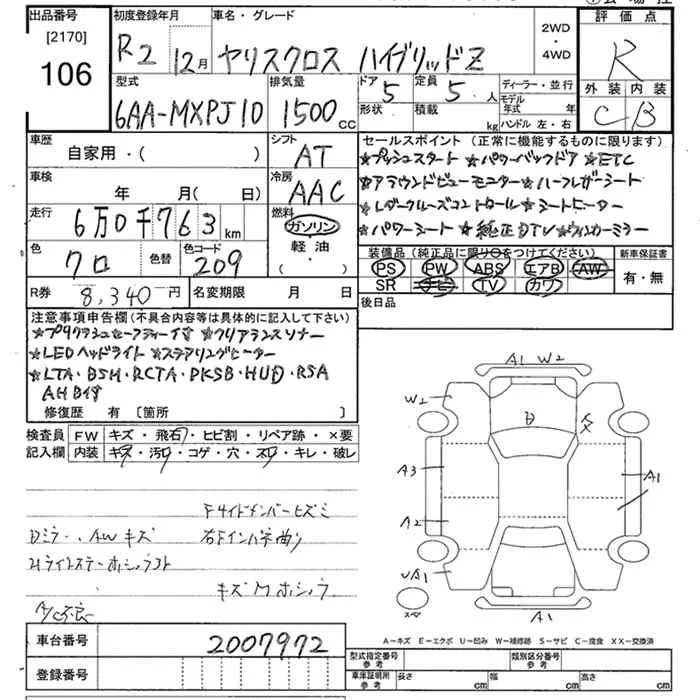 出品番号
[2170]
106
初度登録年月
R2 12月
車名・グレード
ヤリスクロス ハイブリッドZ
2WD
・
4WD
評価点
R
外装 内装
C B
型式
6AA-MXPJ10
排気量
1500cc
ドア
5
形状
定員
5人
積載
kg
ディーラー・並行
モデル年式 年
ハンドル 左・右
車歴
自家用・( )
シフト
AT
車検
年 月( 日)
冷房
AAC
走行
6万0千763km
燃料
ガソリン
軽油
・( )
色
クロ
色替
色コード
209
R券
8,340円
名変期限 月 日
セールスポイント (正常に機能するものに限ります)
★プッシュスタート ★パワーバックドア ★ETC
★アラウンドビューモニター ★ハーフレザーシート
★レーダークルーズコントロール ★シートヒーター
★パワーシート ★純正DTV ★ウィンカーミラー
装備品 (純正品に限り○をつけてください)
PS PW ABS エアB AW
SR ナビ TV カワ
新車保証書
有・無
後日品
注意事項申告欄 (不具合内容等は具体的に記入して下さい)
★プリクラッシュセーフティー付 ★クリアランスソナー
★LEDヘッドライト ★ステアリングヒーター
★LTA・BSM・RCTA・PKSB・HUD・RSA
AHB付
修復歴 有 〔箇所 〕
検査員記入欄
FW キズ・飛石・ヒビ割・リペア跡・×要
内装 キズ・汚レ・コゲ・穴・スレ・キレ・破レ
Fサイドメンバーヒズミ
Dミラー、AWキズ
右Fインパネ曲り
キズMホシノウ
A/C不良
車台番号 2007972
登録番号
A1 W2
W2
A3
A2
A1
A1
A1
スペア
A-キズ E-エクボ U-凹み W-補修跡 S-サビ C-腐食 XX-交換済
型式指定番号
参考
類別区分番号
参考
車庫証明所
参考
長さ cm 幅 cm 高さ cm